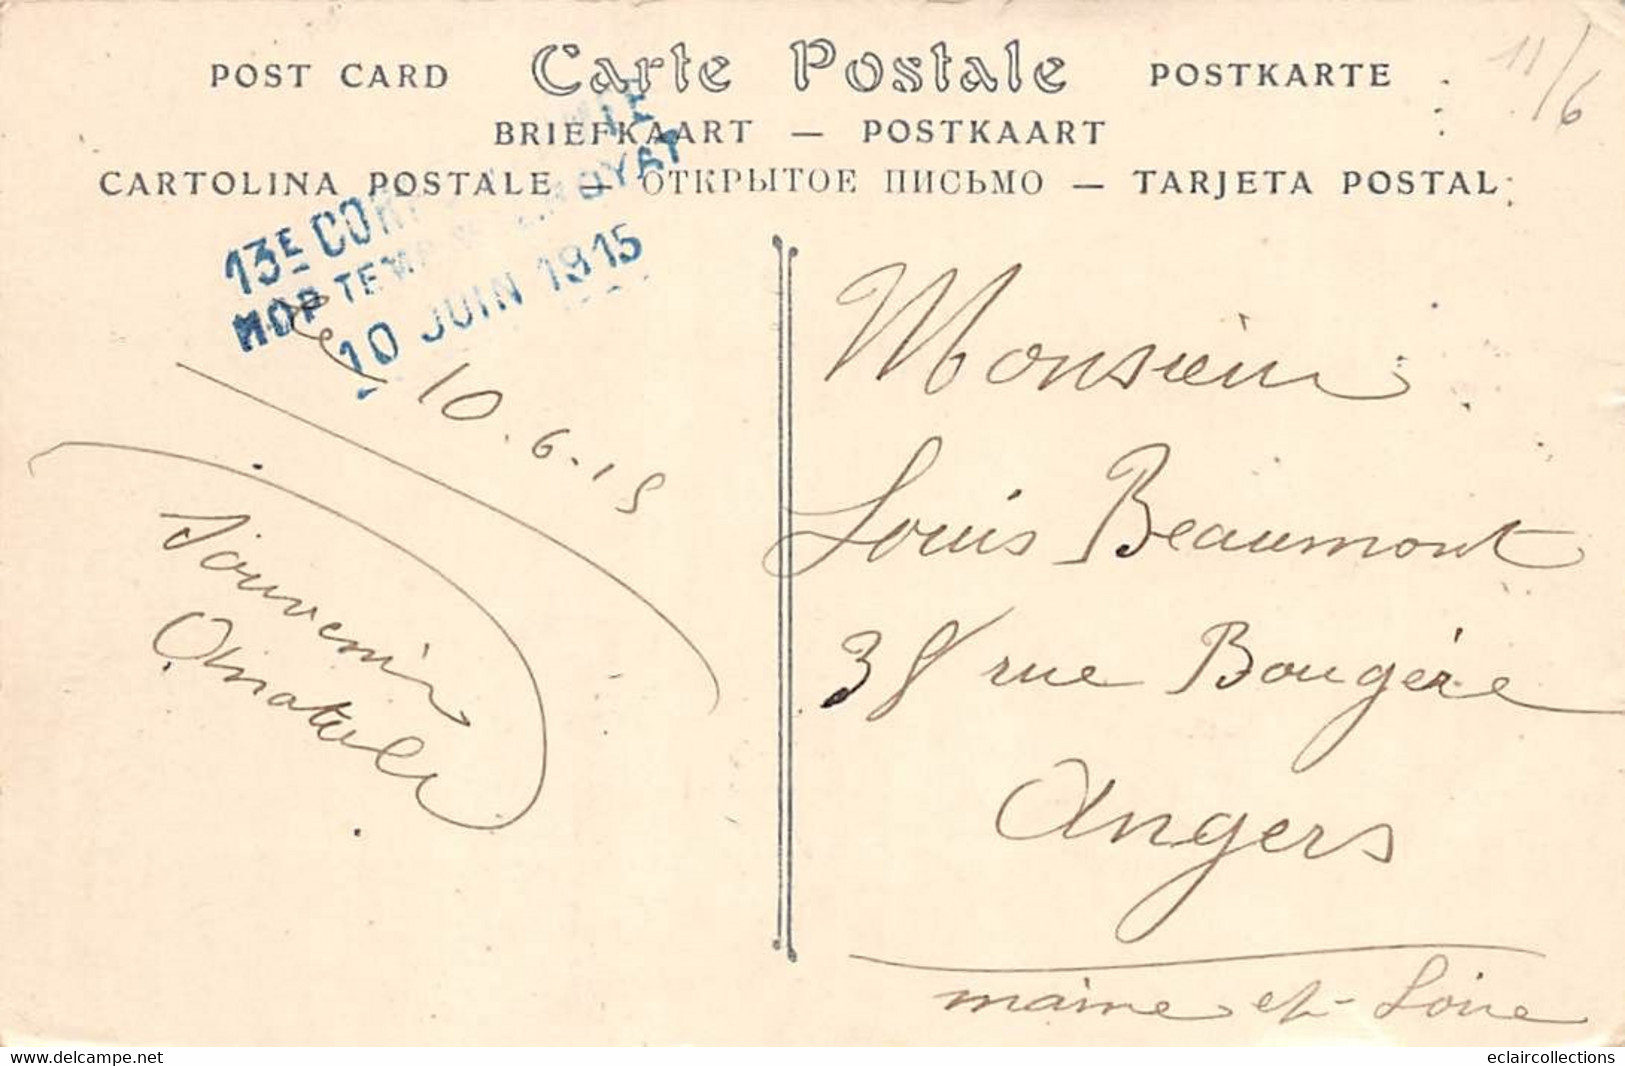 POST CARD Carte Postale POSTKARTE
11/6
BRIEFKAART — POSTKAART
CARTOLINA POSTALE — ОТКРЫТОЕ ПИСЬМО — TARJETA POSTAL
13E CORPS
HOP TEMP ROYAT
10 JUIN 1915
le 10.6.15
Souvenir
Anatole
Monsieur
Louis Beaumont
38 rue Bougère
Angers
maine et-Loire
eclaircollections